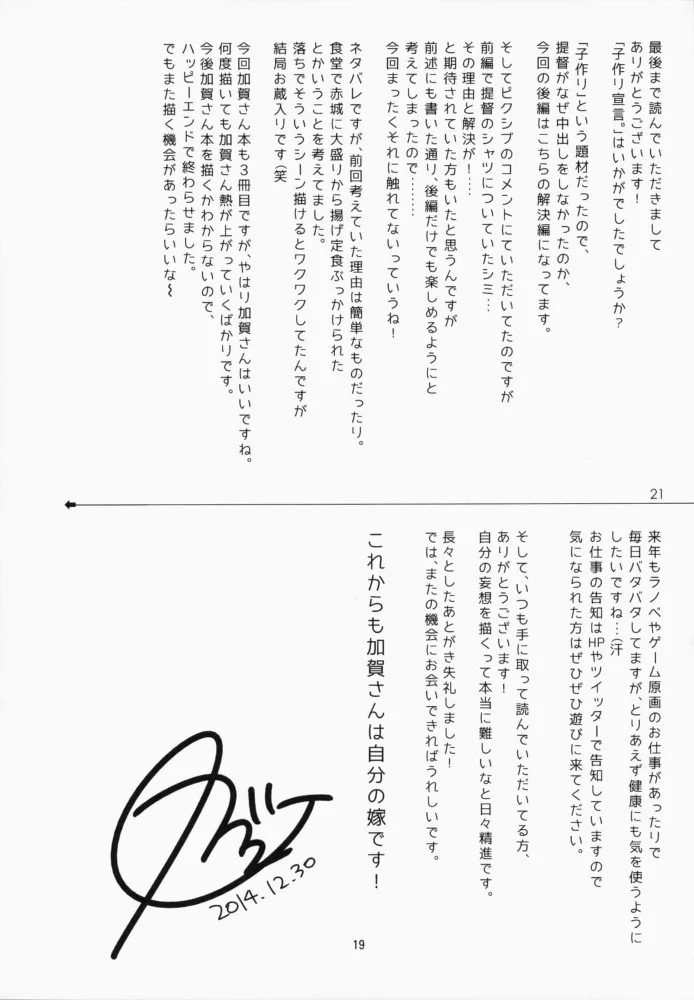 最後まで読んでいただきまして
ありがとうございます!
「子作り宣言。」はいかがでしたでしょうか?
「子作り」という題材だったので、
提督がなぜ中出しをしなかったのか、
今回の後編はこちらの解決編になってます。
そしてピクシブのコメントにていただいてたのですが
前編で提督のシャツについていたシミ…
その理由と解決が!……
と期待されていた方もいたと思うんですが
前述にも書いた通り、後編だけでも楽しめるようにと
考えてしまったので………
今回まったくそれに触れてないっていうね!
ネタバレですが、前回考えていた理由は簡単なものだったり。
食堂で赤城に大盛りから揚げ定食ぶっかけられた
とかいうことを考えてました。
落ちでそういうシーン描けるとワクワクしてたんですが
結局お蔵入りです(笑
今回加賀さん本も3冊目ですが、やはり加賀さんはいいですね。
何度描いても加賀さん熱が上がっていくばかりです。
今後加賀さん本を描くかわからないので、
ハッピーエンドで終わらせました。
でもまた描く機会があったらいいな~
21
来年もラノベやゲーム原画のお仕事があったりで
毎日バタバタしてますが、とりあえず健康にも気を使うように
したいですね…(汗
お仕事の告知はHPやツイッターで告知していますので
気になられた方はぜひぜひ遊びに来てください。
そして、いつも手に取って読んでいただいてる方、
ありがとうございます!
自分の妄想を描くって本当に難しいなと日々精進です。
長々としたあとがき失礼しました!
では、またの機会にお会いできればうれしいです。
これからも加賀さんは自分の嫁です!
2014.12.30
19